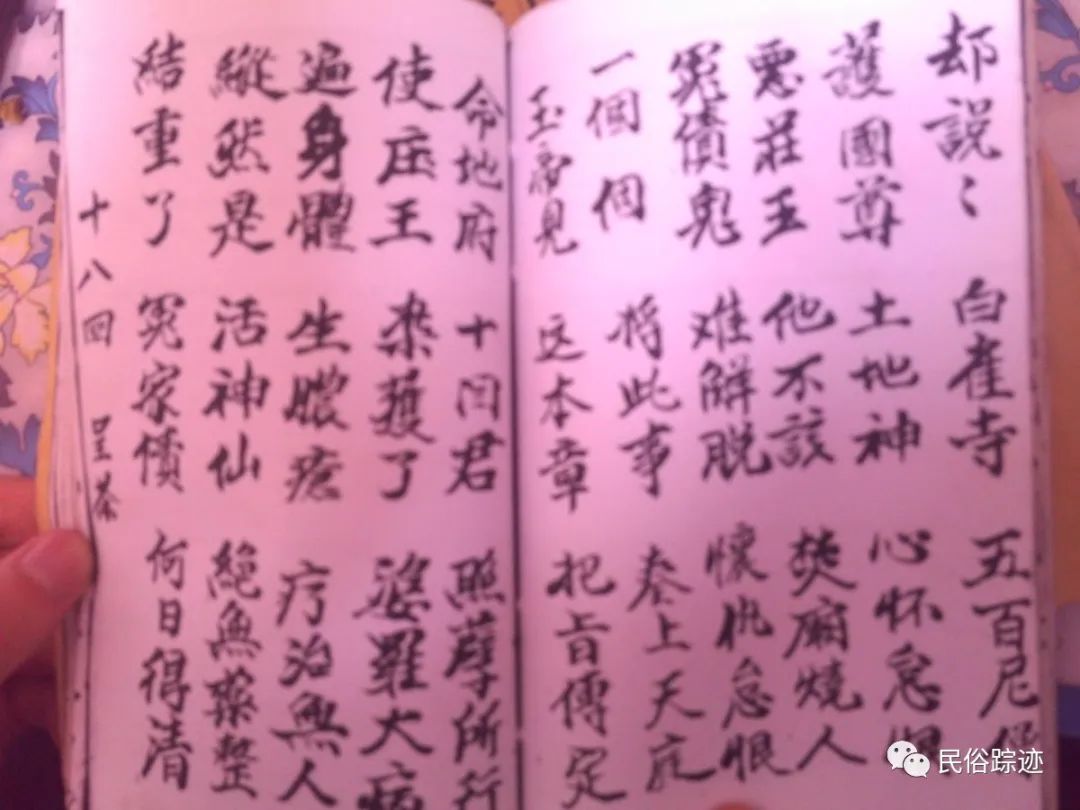 却說〻 白雀寺 五百尼
護國尊 土地神 心怀怠恨
惡莊王 他不該 焚廟燒人
冤債鬼 难解脱 懷仇怠恨
一個個 将此事 奏上天庭
玉帝見 这本章 把旨傳定
命地府 十闫君 照孽所行
使庄王 染獲了 罹大病
遍身體 生膿疮 疗治無人
縱然是 活神仙 絕無藥整
結重了 冤家債 何日得清
十八回 呈茶
民俗踪迹